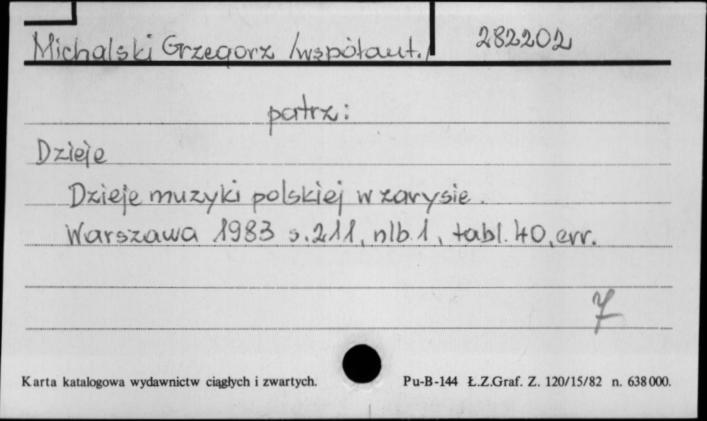 Michalski Grzegorz /współaut./ 282202
patrz:
Dzieje
Dzieje muzyki polskiej w zarysie.
Warszawa 1983 s. 211, nlb. 1, tabl. 40, err.
7
Karta katalogowa wydawnictw ciągłych i zwartych. Pu-B-144 Ł.Z.Graf. Z. 120/15/82 n. 638 000.